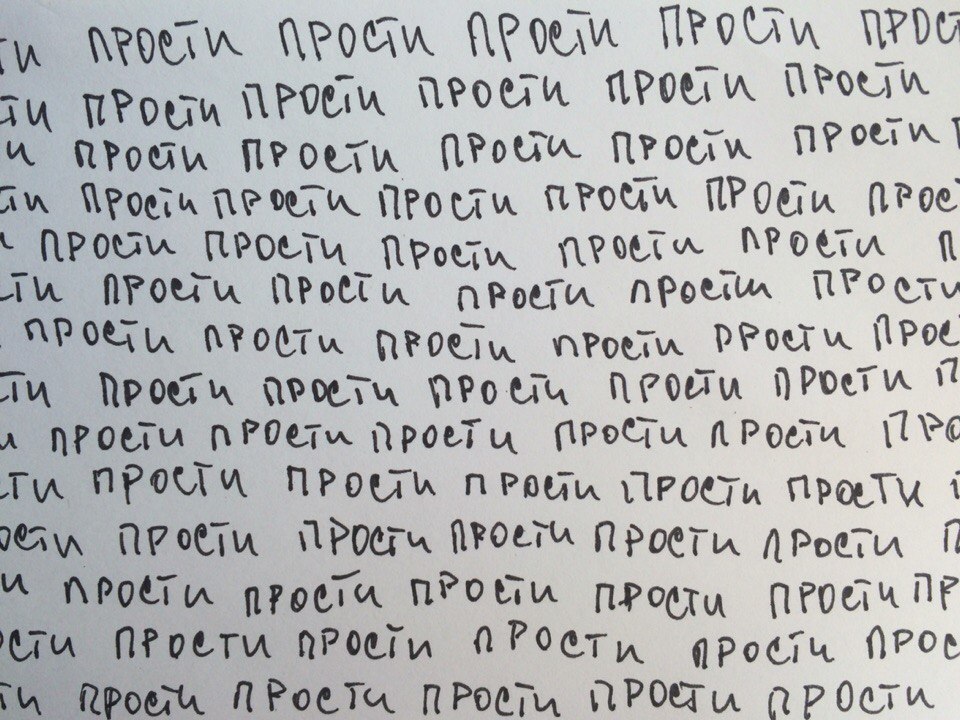 ти прости прости прости прости прост
сти прости прости прости прости прости
и прости прости прости прости прости п
сти прости прости прости прости прости прос
и прости прости прости прости прости п
сти прости прости прости прости прости
прости прости прости прости прости прос
сти прости прости прости прости прости п
и прости прости прости прости прости про
сти прости прости прости прости прости п
ости прости прости прости прости прости п
и прости прости прости прости прости пр
ости прости прости прости прости прос
ти прости прости прости прости прости